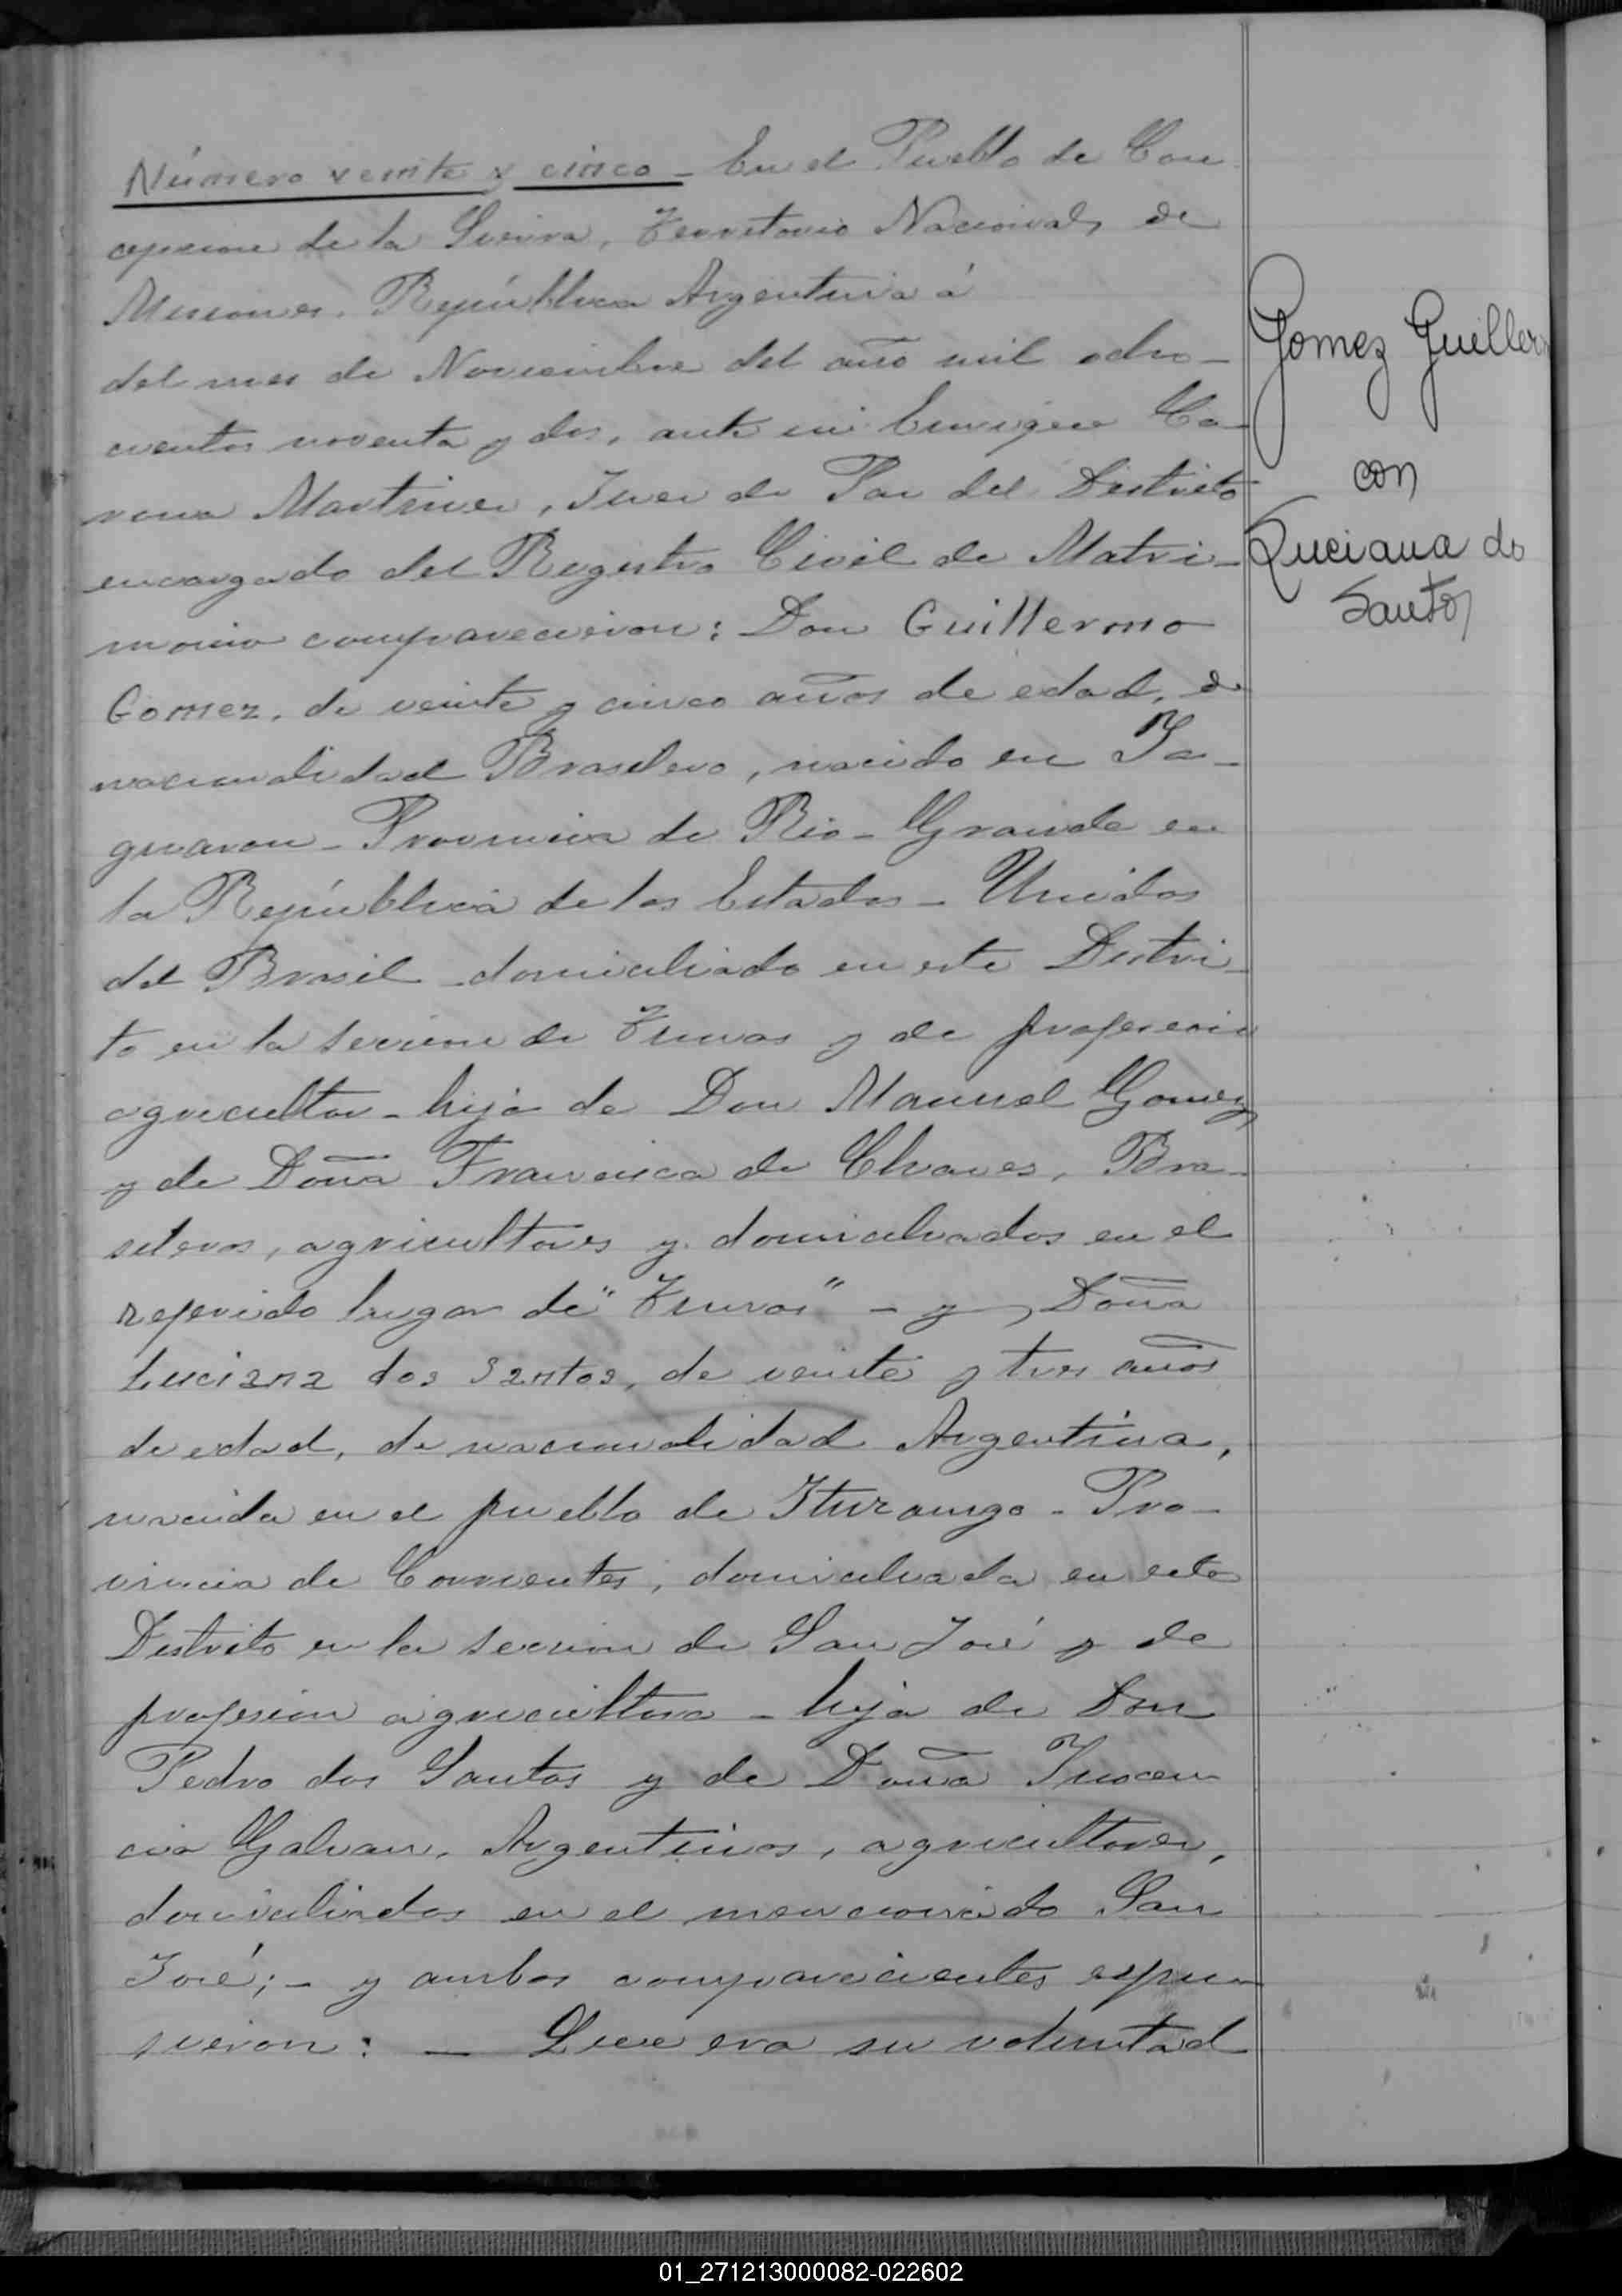 Número veinte y cinco - En el Pueblo de Con
cepcion de la Sierra, Territorio Nacional, de
Misiones. República Argentina á
del mes de Noviembre del año mil ocho-
cientos noventa y dos, ante mi Enrique Ca-
rona Martinez, Juez de Paz del Distrito
encargado del Registro Civil de Matri-
monio comparecieron: Don Guillermo
Gomez, de veinte y cinco años de edad, de
nacionalidad Brasilero, nacido en Ya-
guaron - Provincia de Rio - Grande en
la República de los Estados - Unidos
del Brasil - domiciliado en este Distri-
to en la seccion de Tunas y de profesion
agricultor - hijo de Don Manuel Gomez
y de Doña Francisca de Chaves, Bra-
sileros, agricultores y domiciliados en el
referido lugar de "Tunas" - y Doña
Luciana dos Santos, de veinte y tres años
de edad, de nacionalidad Argentina,
nacida en el pueblo de Ituzaingo - Pro-
vincia de Corrientes, domiciliada en este
Distrito en la seccion de San José y de
profesion agricultora - hija de Don
Pedro dos Santos y de Doña Inocen
cia Galvan, Argentinos, agricultores,
domiciliados en el mencionado San
José; - y ambos comparecientes espu-
sieron: - Que era su voluntad
Gomez Guiller
con
Luciana do
Santos
01_271213000082-022602